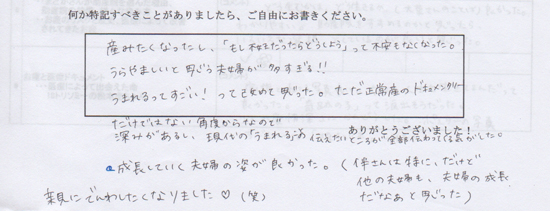 何か特記すべきことがありましたら、ご自由にお書きください。
産みたくなったし、「もし私だったらどうしよう」って不安もなくなった。
うらやましいと思う夫婦が多すぎる!!
うまれるってすごい!って改めて思った。ただ正常産のドキュメンタリー
だけではない角度からなので
深みがあるし、現代の「うまれる」の伝えたいところが全部伝わってくる気がした。
ありがとうございました!
成長していく夫婦の姿が良かった。(伴さんは特に、だけど
他の夫婦も、夫婦の成長
だなぁと思った)
親にでんわしたくなりました♡(笑)